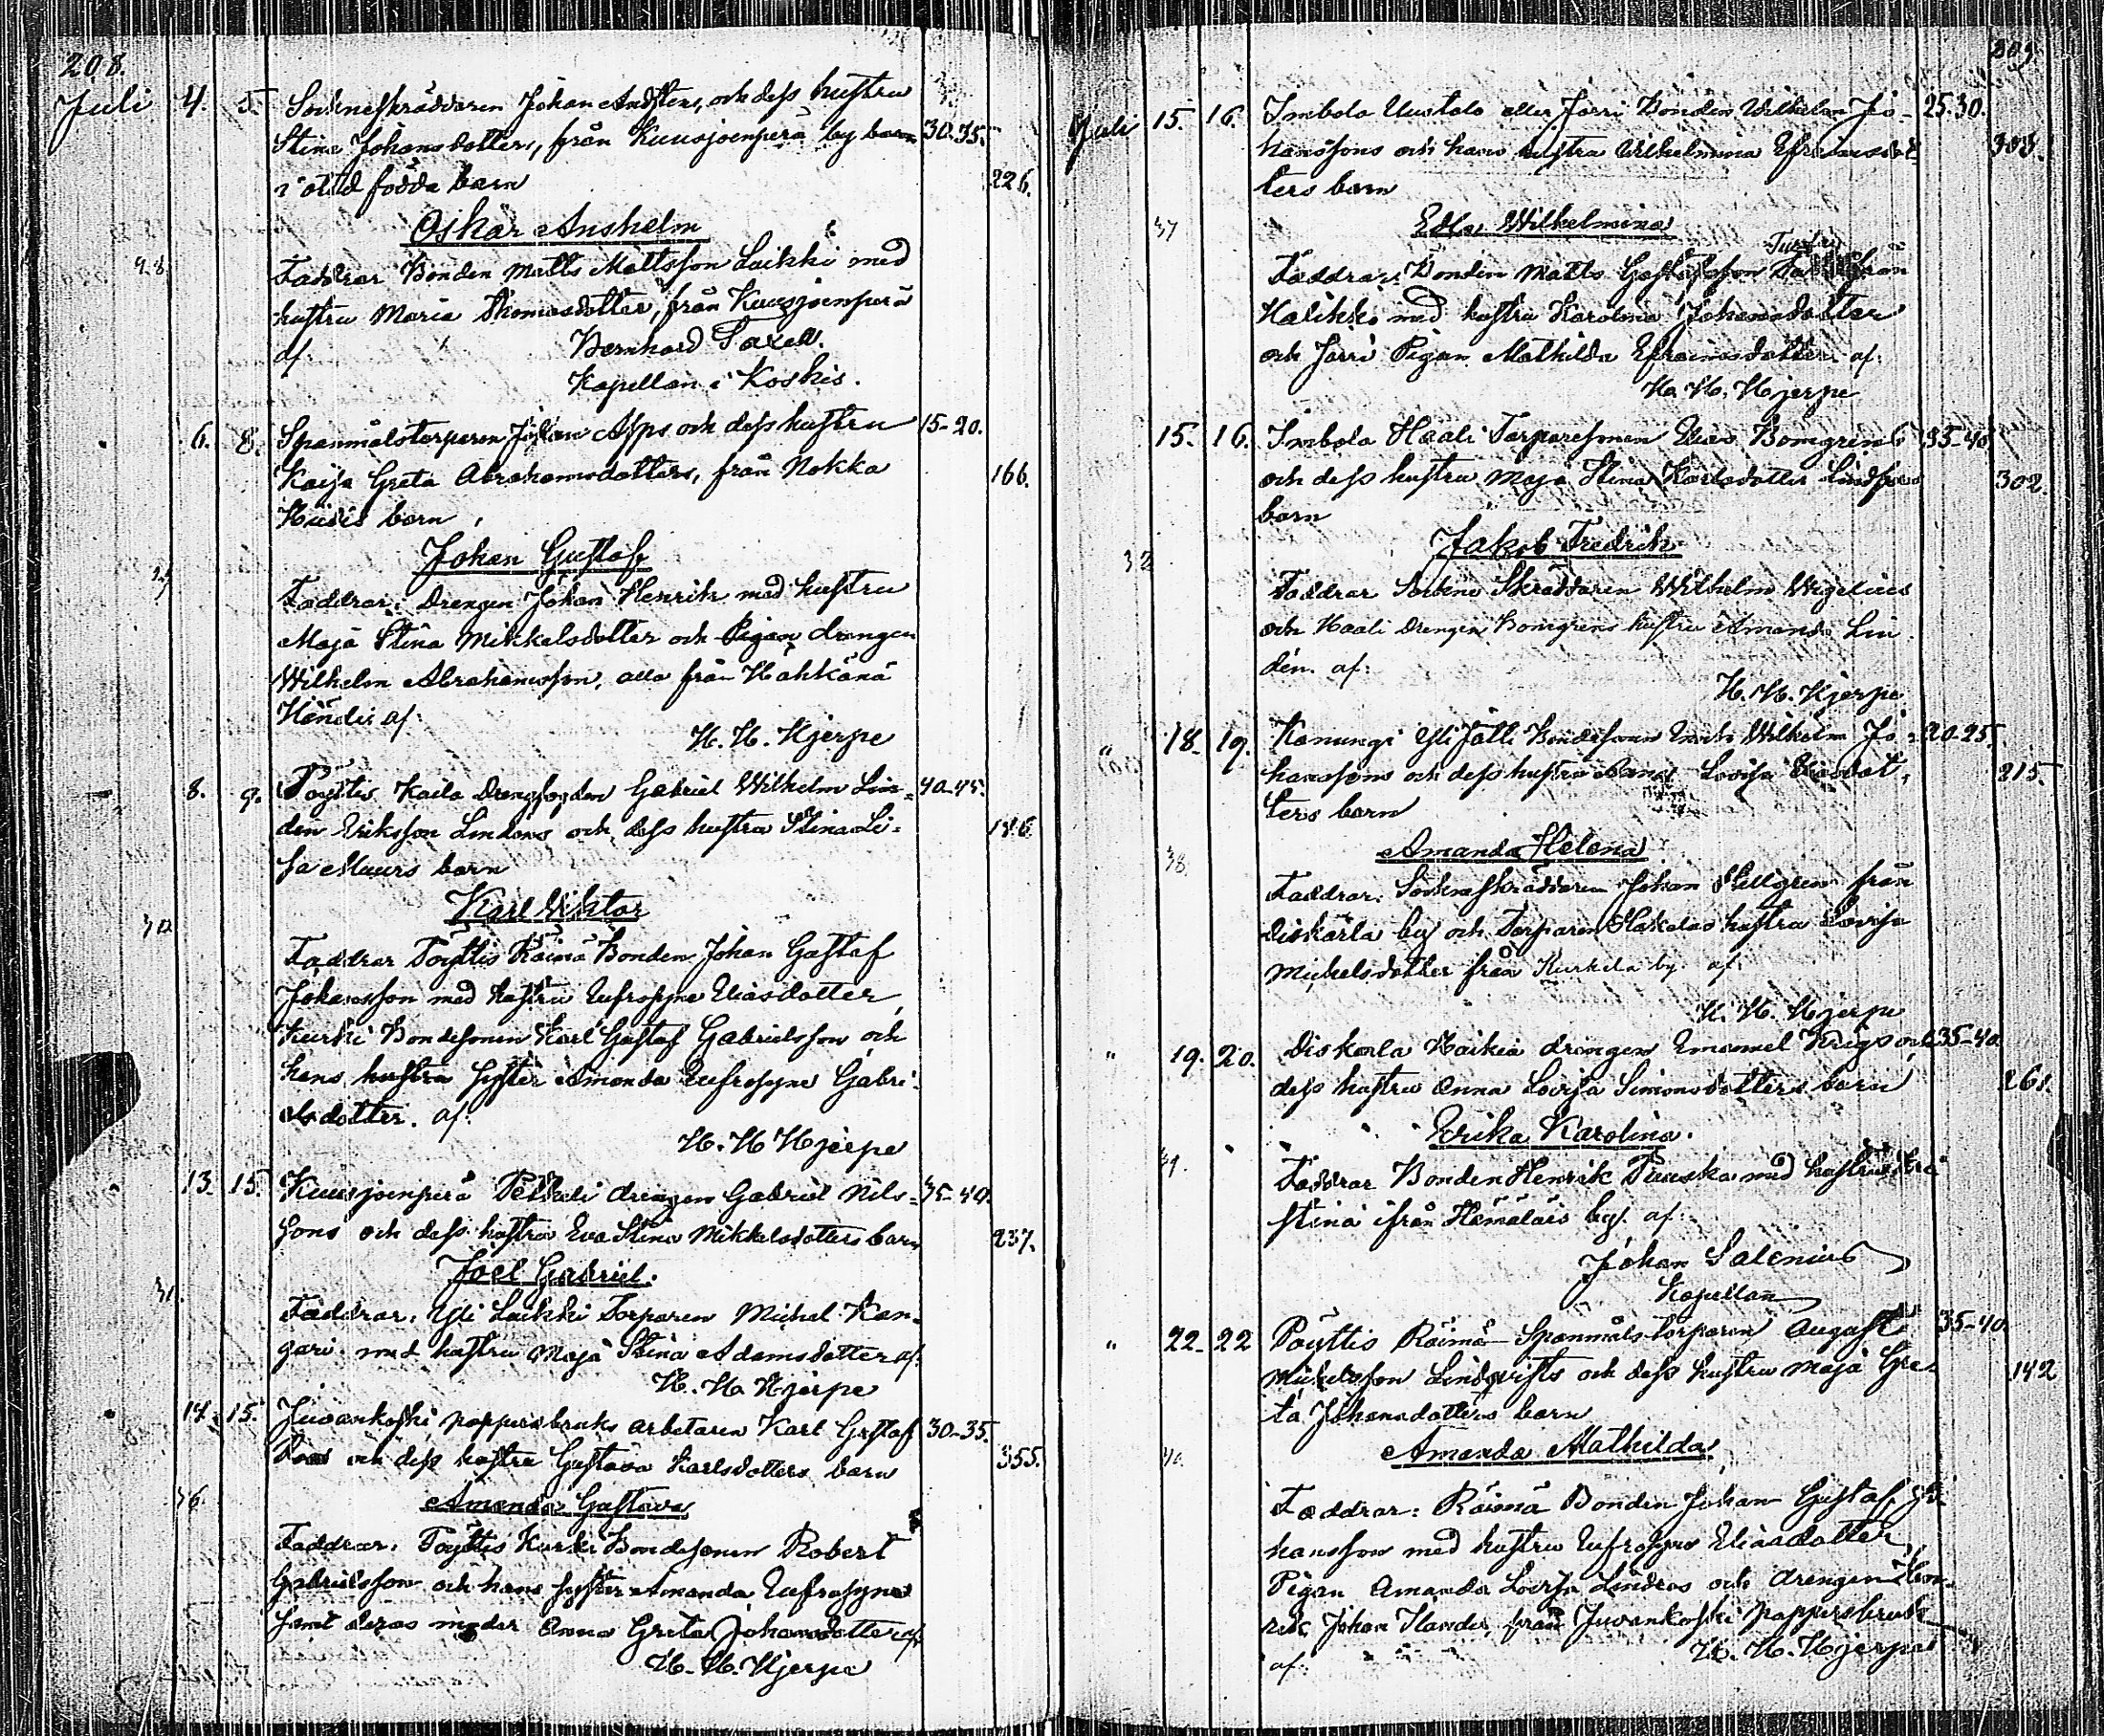 208.
Juli 4. 5. Sockneskräddaren Johan Andsténs, och dess hustru
Stina Johansdotters, från Kuusjoenperä by barn 30-35.
födda barn 226.
Oskar Anshelm
28. Faddrar Bonden Matts Mattsson Laikki med
hustru Maria Thomasdotter, från Kuusjoenperä
af. Bernhard Taxell.
Kapellan i Koskis.
6. 8. Spanmålstorparen Johan Apps och dess hustru 15-20.
Kaisa Greta Abrahamsdotters, från Nokka 166.
barn
Johan Gustaf
Faddrar: Drengen Johan Henrik med hustru
Maja Stina Mikkelsdotter och Pigan drengen
Wilhelm Abrahamsson, alla från Hahkänä
af: H. H. Hjerpe
8. 9. Pöytis Kaila Drengfogden Gabriel Wilhelm Lin= 40-45.
den Eriksson Lindens och dess hustru Stina Li=
sa Maurs barn
Karl Viktor
30. Faddrar Pöyttis Räimä Bonden Johan Gustaf
Johansson med hustru Eufrosyne Eliasdotter,
Kurki Bondesonen Karl Gustaf Gabrielsson och
hans hustru syster Amanda Eufrosyne Gabri-
elsdotter. af:
H. H Hjerpe
13. 15. Kuusjoenperä drengen Gabriel Nils= 35-40.
sons och dess hustru Eva Stina Mikkelsdotters barn 237.
Joel Gabriel.
31. Faddrar: Yli Laikki Torparen Michel Kan=
gari med hustru Maja Stina Adamsdotter af:
H. H. Hjerpe
14. 15. Juvankoski pappersbruks arbetaren Karl Gustaf 30-35.
och dess hustru Gustava Karlsdotters barn 355.
36. Amanda Gustava
Faddrar: Pöyttis Kurki Bondesonen Robert
Gabrielsson och hans syster Amanda Eufrosyne
samt deras moder Anna Greta Johansdotter af:
H. H. Hjerpe
209.
Juli 15. 16. Imbola Uustalo eller Jarri Bonden Wilhelm Jo- 25.30.
hanssons och hans hustru Wilhelmina Efraimsdot 303.
ters barn
37 Edla Wilhelmina
Faddrar: Bonden Matts Gustafsson från
Halikko med hustru Karolina Johansdotter
och Jarri Pigan Mathilda Efraimsdotter af:
H. H. Hjerpe
15. 16. Imbola Haali Torparesonen Elias Bomgrens 35-40
och dess hustru Maja Stina Karlsdotter 302.
barn
Jakob Fredrik
Faddrar Sockne Skräddaren Wilhelm Wigelius
och Haali Drengen Bomgrens hustru Amanda Lin
den. af:
H. H. Hjerpe
" 18. 19. Kanungi Yli Jälli Bondesonen Wilhelm Jo= 20-25.
hanssons och dess hustru Lovisa 215.
ters barn
38. Amanda Helena
Faddrar: Sockneskräddaren Johan från
Diskarla by och Torparen hustru Lovisa
Michelsdotter från Kurkela by. af:
H. H. Hjerpe
" 19. 20. Diskarla drengen Emanuel Krigs och 35-40.
dess hustru Anna Lovisa Simonsdotters barn 261.
Erika Karolina.
39. Faddrar Bonden Henrik med hustru
Stina ifrån Hämäläis by. af:
Johan Salenius
Kapellan
" 22. 22 Pöyttis Räimä Spanmåls torparen August 35-40.
Michelsson Lindqvists och dess hustru Maja Gre= 142
ta Johansdotters barn
40. Amanda Mathilda
Faddrar: Räimä Bonden Johan Gustaf Jo-
hansson med hustru Eufrosyne Eliasdotter,
Pigan Amanda Lovisa Lindros och drengen Hen-
rik Johan från Juvankoski pappersbruk
af: H. H. Hjerpe